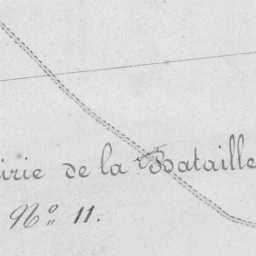 irie de la Bataille
No 11.